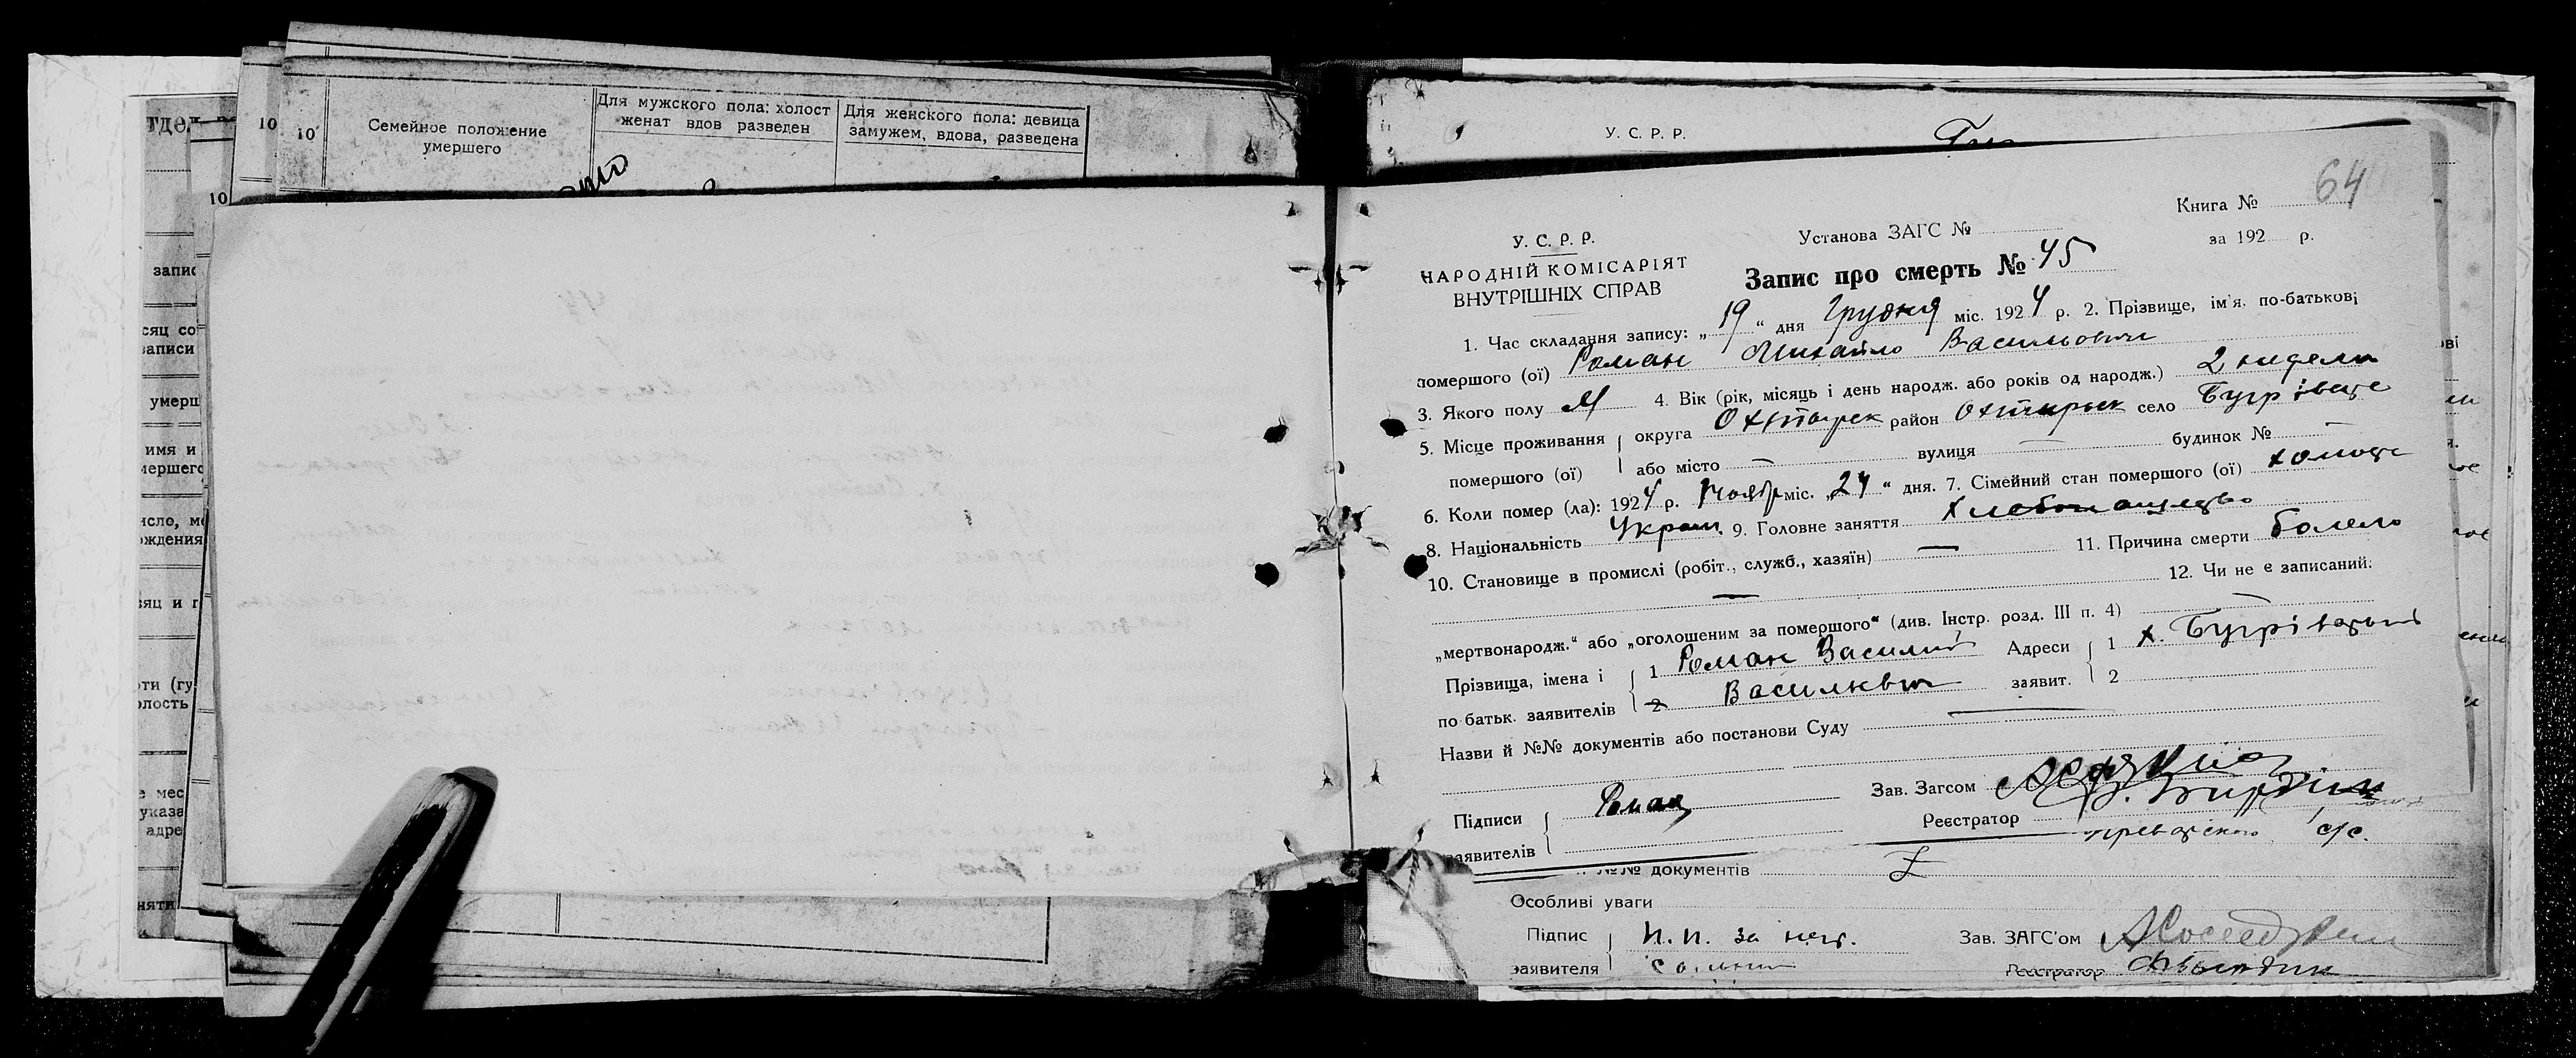 тдел
10
10
Семейное положение
умершего
Для мужского пола: холост
женат вдов разведен
Для женского пола: девица
замужем, вдова, разведена
10
запис
сяц со
записи
умерш
имя и
мершего
исло, ме
ождения
сяц и г
рти (гу
олость
е мес
указа
адре
няти
У. С. Р. Р.
64
Книга №
У. С. Р. Р.
Установа ЗАГС №
за 192 р.
НАРОДНІЙ КОМІСАРІЯТ
ВНУТРІШНІХ СПРАВ
Запис про смерть № 45
1. Час складання запису: „ 19 “ дня Грудня міс. 192 4 р. 2. Прізвище, ім'я, по-батькові
помершого (ої) Роман Михайло Васильович
3. Якого полу М 4. Вік (рік, місяць і день народж. або років од народж.) 2 недели
5. Місце проживання округа Охтырск район Охтырск село Бугріваце
помершого (ої) або місто — вулиця — будинок № —
6. Коли помер (ла): 192 4 р. Ноябр міс. „ 24 “ дня. 7. Сімейний стан помершого (ої)
8. Національність Украин. 9. Головне заняття
10. Становище в промислі (робіт., служб., хазяїн) — 11. Причина смерти болело
— 12. Чи не є записаний:
„мертвонародж.“ або „оголошеним за помершого“ (див. Інстр. розд. III п. 4) —
Прізвища, імена і 1 Роман Василий Адреси 1 х.
по батьк. заявителів 2 Василювич заявит. 2
Назви й №№ документів або постанови Суду
Зав. Загсом
Підписи Роман
Реєстратор
заявителів
с/с.
№№ документів
Особливі уваги
Підпис Н.П. за нег.
Зав. ЗАГС'ом
заявителя
Реєстратор